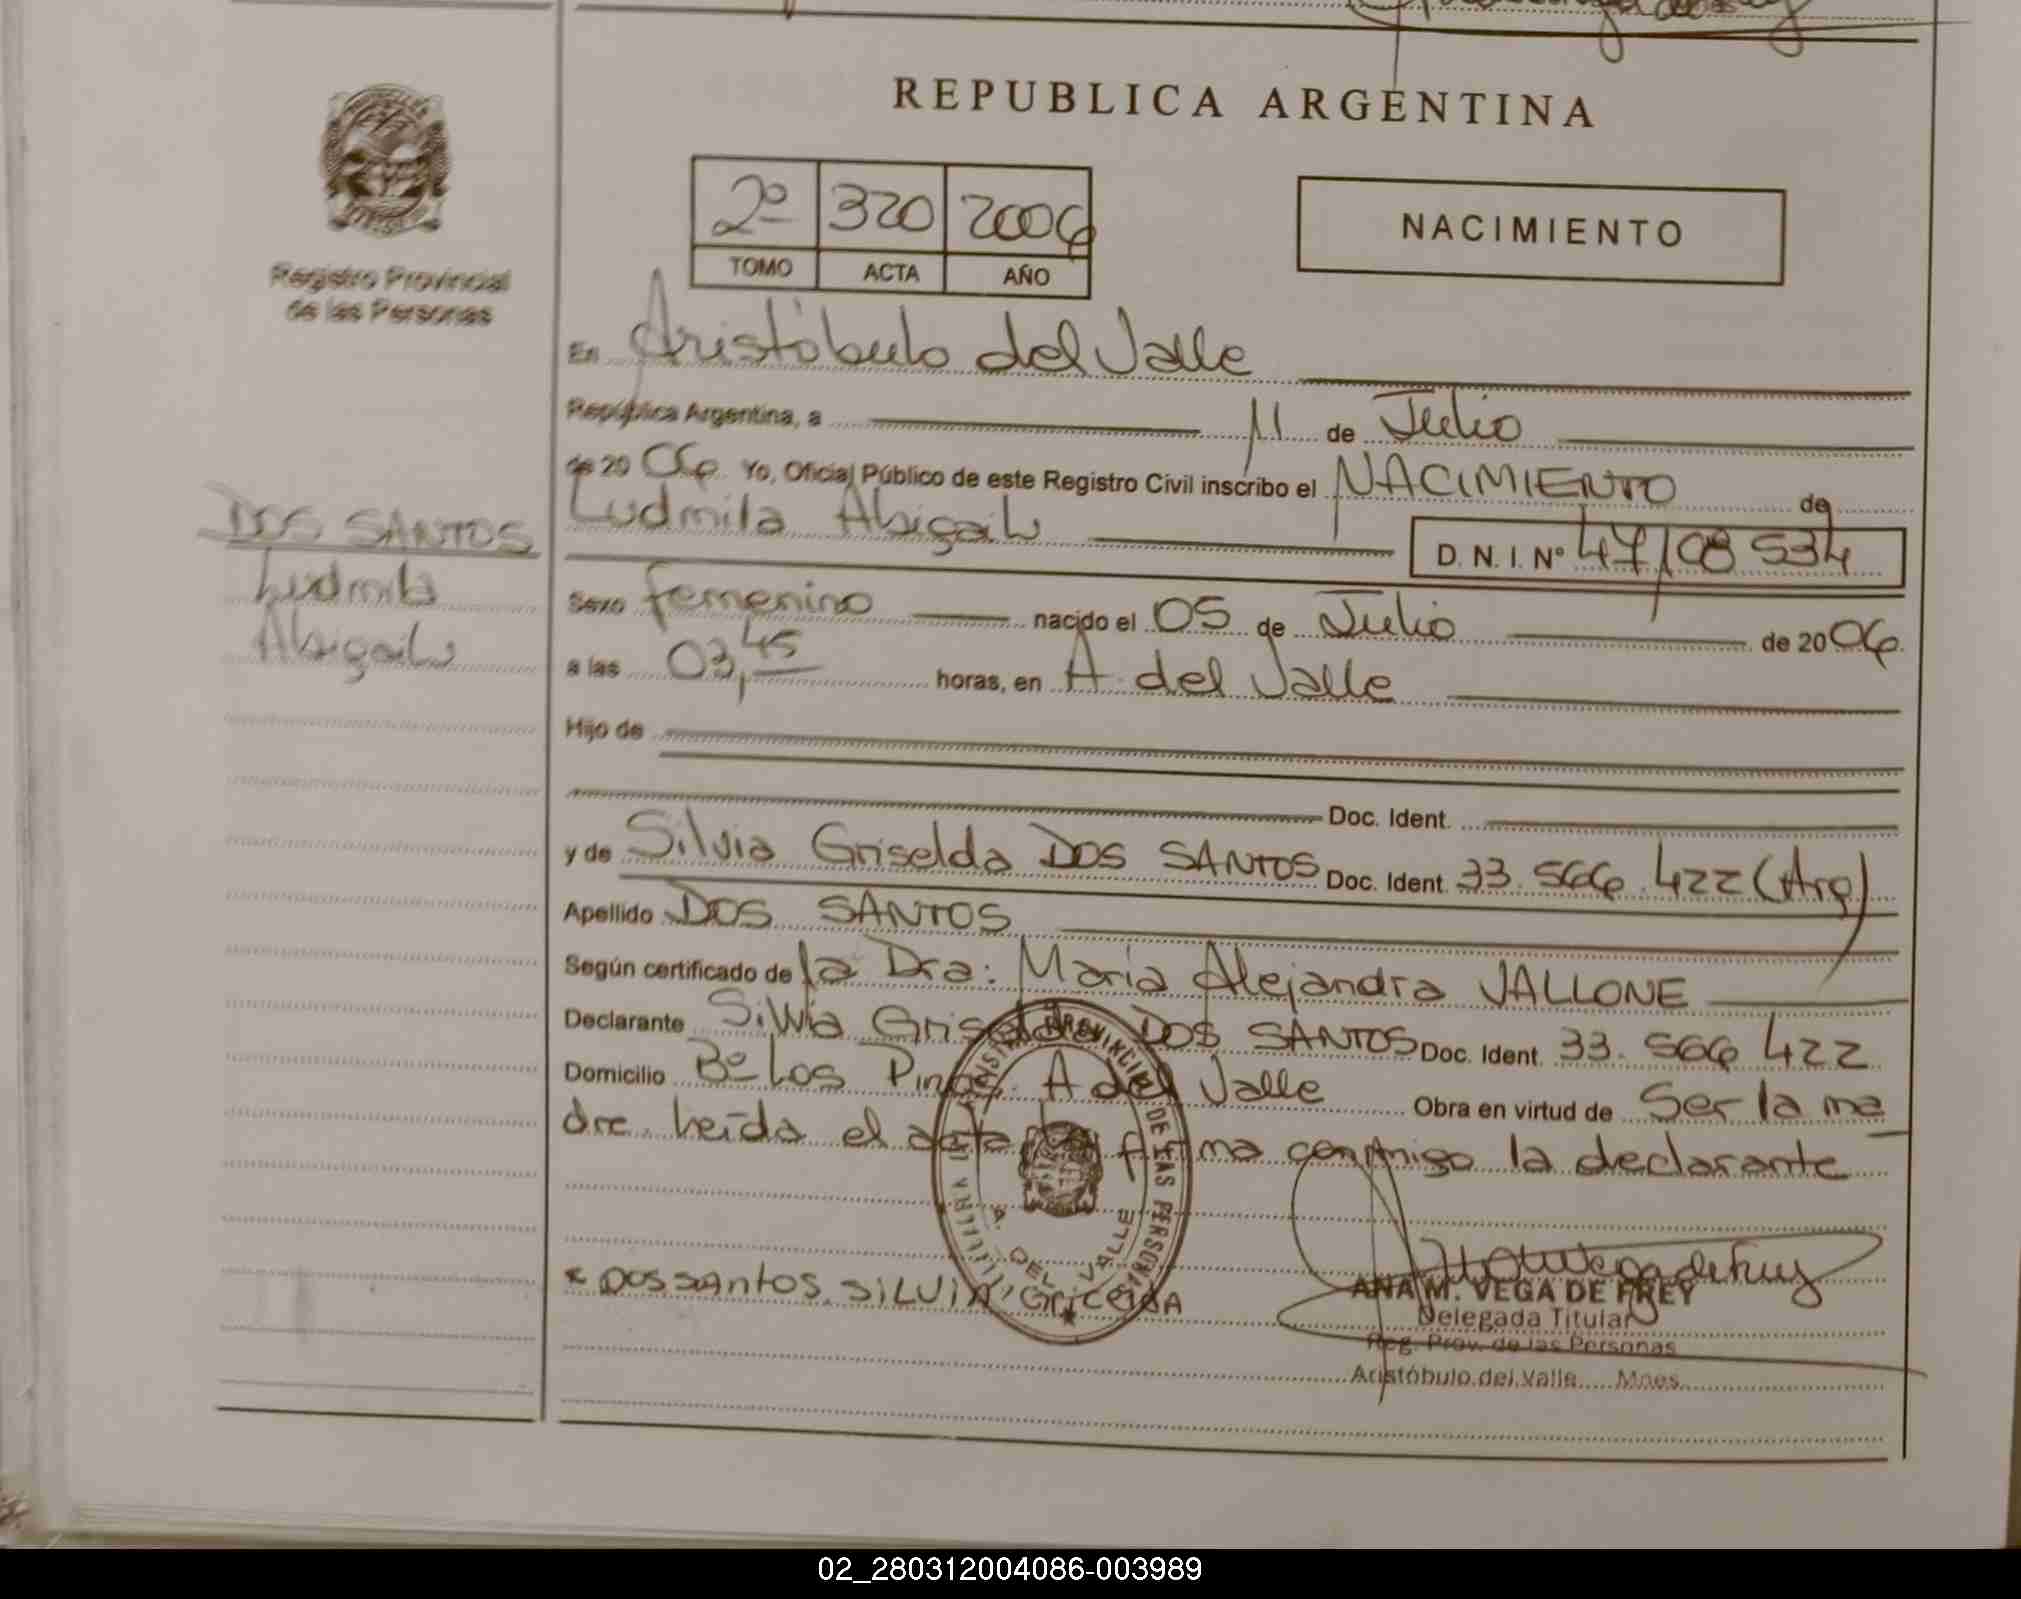 REPUBLICA ARGENTINA
2º 320 2006
TOMO ACTA AÑO
NACIMIENTO
Registro Provincial
de las Personas
En Aristóbulo del Valle
República Argentina, a 11 de Julio
de 2006 Yo, Oficial Público de este Registro Civil inscribo el NACIMIENTO de
Ludmila Abigail D. N. I. Nº 47108534
DOS SANTOS
Ludmila
Abigail
Sexo femenino nacido el 05 de Julio de 2006
a las 03,45 horas, en A. del Valle
Hijo de
Doc. Ident.
y de Silvia Griselda DOS SANTOS Doc. Ident. 33.566.422 (Arg)
Apellido DOS SANTOS
Según certificado de la Dra: Maria Alejandra VALLONE
Declarante Silvia Griselda DOS SANTOS Doc. Ident. 33.566.422
Domicilio Bº Los Pinos. A del Valle Obra en virtud de Ser la ma
dre. Leída el acta la firma conmigo la declarante
PROVINCIAL DE LAS PERSONAS
A. DEL VALLE
* DOS SANTOS. SILVIA GRICELDA
ANA M. VEGA DE FREY
Delegada Titular
Reg. Prov. de las Personas
Aristóbulo del Valle Mnes.
02_280312004086-003989